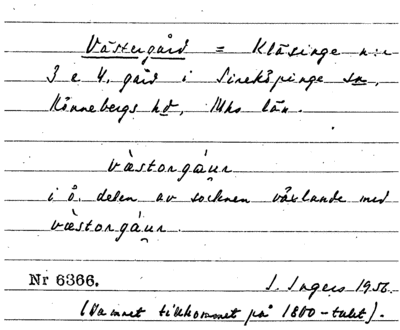 Västergård = Klåsinge n:r
3 o 4, gård i Sireköpinge sn,
Rönnebergs hd, Mhs län.
västorgáur
i ö. delen av socknen växlande med
væstorgáur.
Nr 6366.
I. Ingers 1956.
(Namnet tillkommet på 1800-talet).